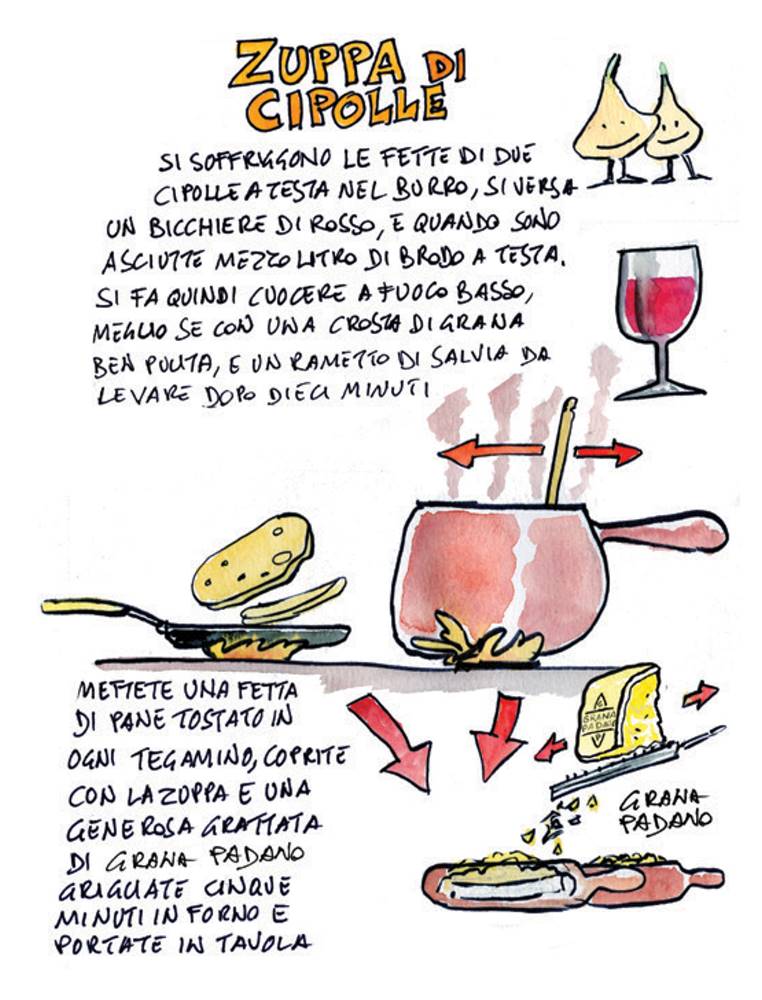 ZUPPA DI
CIPOLLE
SI SOFFRIGGONO LE FETTE DI DUE
CIPOLLE A TESTA NEL BURRO, SI VERSA
UN BICCHIERE DI ROSSO, E QUANDO SONO
ASCIUTTE MEZZO LITRO DI BRODO A TESTA.
SI FA QUINDI CUOCERE A FUOCO BASSO,
MEGLIO SE CON UNA CROSTA DI GRANA
BEN PULITA, E UN RAMETTO DI SALVIA DA
LEVARE DOPO DIECI MINUTI
METTETE UNA FETTA
DI PANE TOSTATO IN
OGNI TEGAMINO, COPRITE
CON LA ZUPPA E UNA
GENEROSA GRATTATA
DI GRANA PADANO
GRIGLIATE CINQUE
MINUTI IN FORNO E
PORTATE IN TAVOLA
GRANA
PADANO
GRANA
PADANO